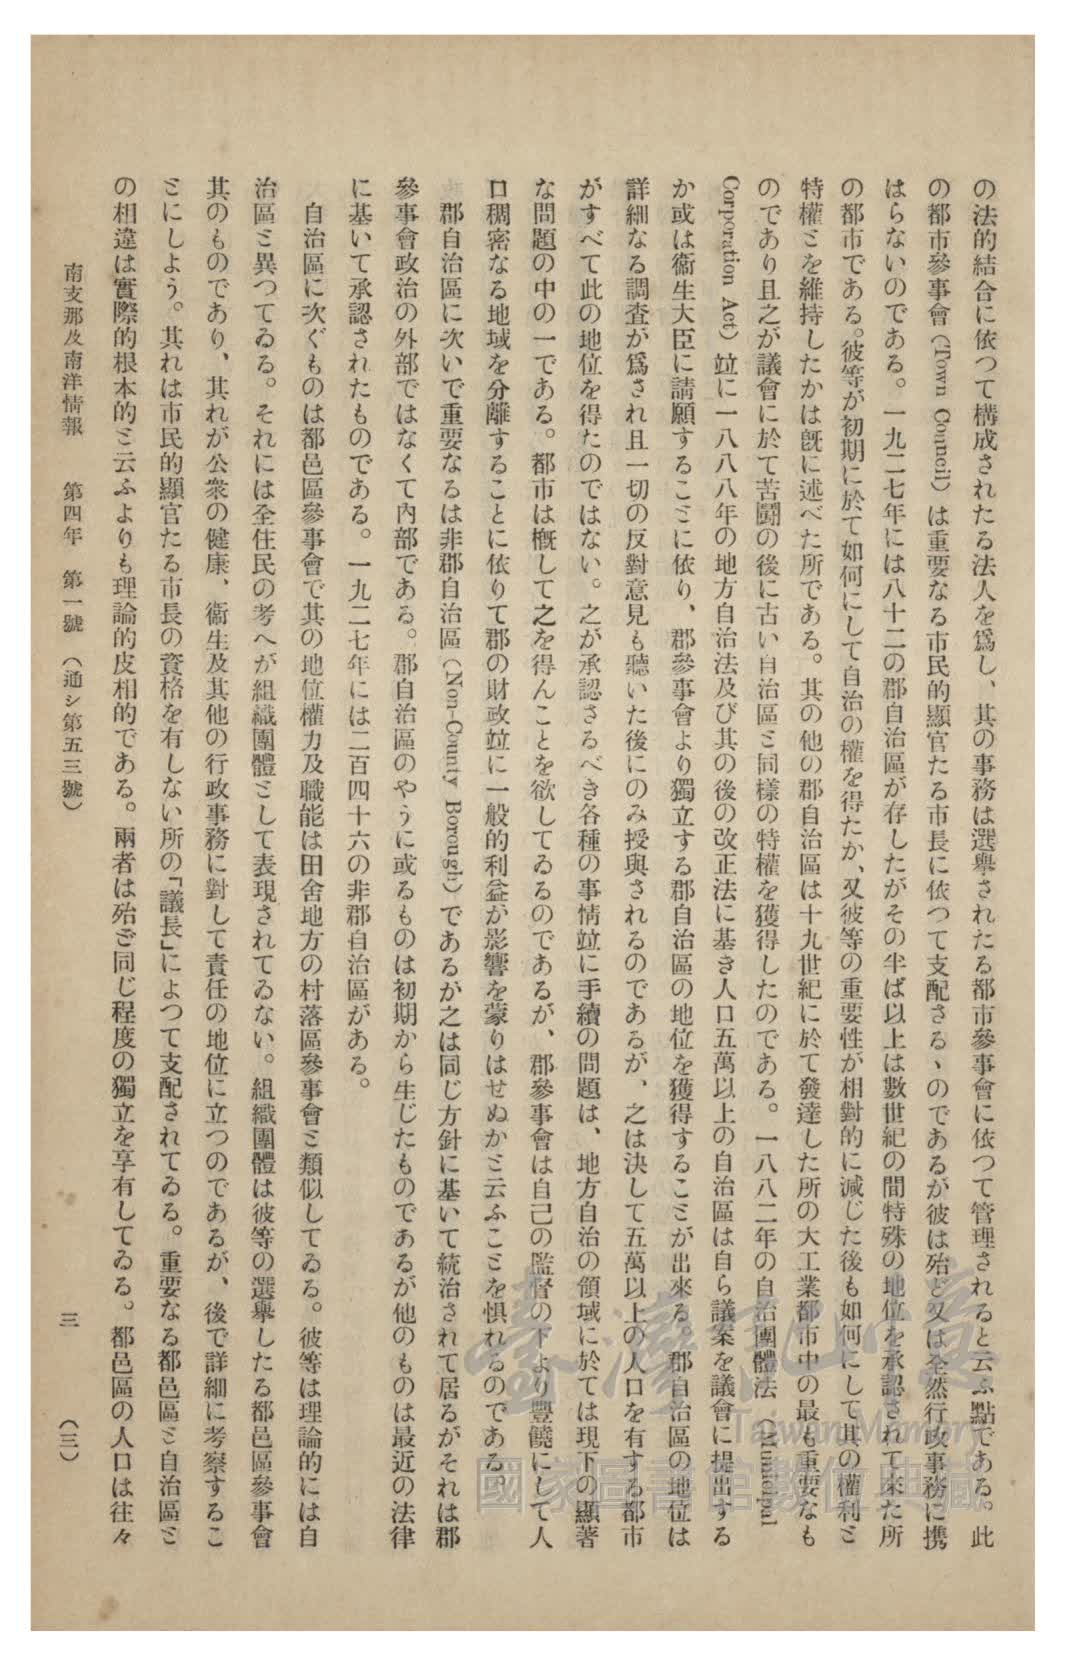 の法的結合に依つて構成されたる法人を爲し、其の事務は選擧されたる都市參事會に依つて管理されると云ふ點である。此
の都市參事會（Town Council）は重要なる市民的顯官たる市長に依つて支配さるゝのであるが彼は殆ど又は全然行政事務に携
はらないのである。一九二七年には八十二の郡自治區が存したがその半ば以上は數世紀の間特殊の地位を承認されて來た所
の都市である。彼等が初期に於て如何にして自治の權を得たか、又彼等の重要性が相對的に減じた後も如何にして其の權利ミ
特權ミを維持したかは旣に述べた所である。其の他の郡自治區は十九世紀に於て發達した所の大工業都市中の最も重要なも
のであり且之が議會に於て苦鬪の後に古い自治區ミ同樣の特權を獲得したのである。一八八二年の自治團體法（Municipal
Corporation Act）竝に一八八八年の地方自治法及び其の後の改正法に基き人口五萬以上の自治區は自ら議案を議會に提出する
か或は衞生大臣に請願するこミに依り、郡參事會より獨立する郡自治區の地位を獲得するこミが出來る。郡自治區の地位は
詳細なる調査が爲され且一切の反對意見も聽いた後にのみ授與されるのであるが、之は決して五萬以上の人口を有する都市
がすべて此の地位を得たのではない。之が承認さるべき各種の事情竝に手續の問題は、地方自治の領域に於ては現下の顯著
な問題の中の一である。都市は槪して之を得んことを欲してゐるのであるが、郡參事會は自己の監督の下より豐饒にして人
口稠密なる地域を分離することに依りて郡の財政竝に一般的利益が影響を蒙りはせぬかミ云ふこミを惧れるのである。
郡自治區に次いで重要なるは非郡自治區（Non-County Borough）であるが之は同じ方針に基いて統治されて居るがそれは郡
參事會政治の外部ではなくて內部である。郡自治區のやうに或るものは初期から生じたものであるが他のものは最近の法律
に基いて承認されたものである。一九二七年には二百四十六の非郡自治區がある。
自治區に次ぐものは都邑區參事會で其の地位權力及職能は田舍地方の村落區參事會ミ類似してゐる。彼等は理論的には自
治區ミ異つてゐる。それには全住民の考へが組織團體ミして表現されてゐない。組織團體は彼等の選擧したる都邑區參事會
其のものであり、其れが公衆の健康、衞生及其他の行政事務に對して責任の地位に立つのであるが、後で詳細に考察するこ
ミにしよう。其れは市民的顯官たる市長の資格を有しない所の「議長」によつて支配されてゐる。重要なる都邑區ミ自治區ミ
の相違は實際的根本的ミ云ふよりも理論的皮相的である。兩者は殆ご同じ程度の獨立を享有してゐる。都邑區の人口は往々
南支那及南洋情報　第四年　第一號　（通シ第五三號）　三　（三）
臺灣記憶
Taiwan Memory
國家圖書館數位典藏